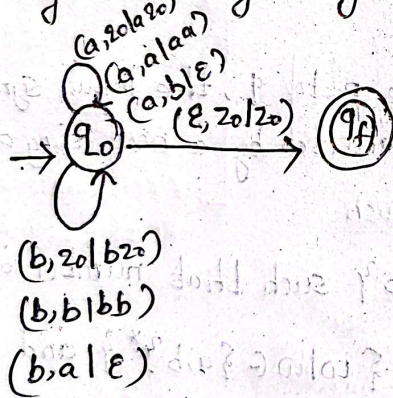 (a, z0/az0)
(a, a/aa)
(a, b/ε)
(ε, z0/z0)
q0
qf
(b, z0/bz0)
(b, b/bb)
(b, a/ε)